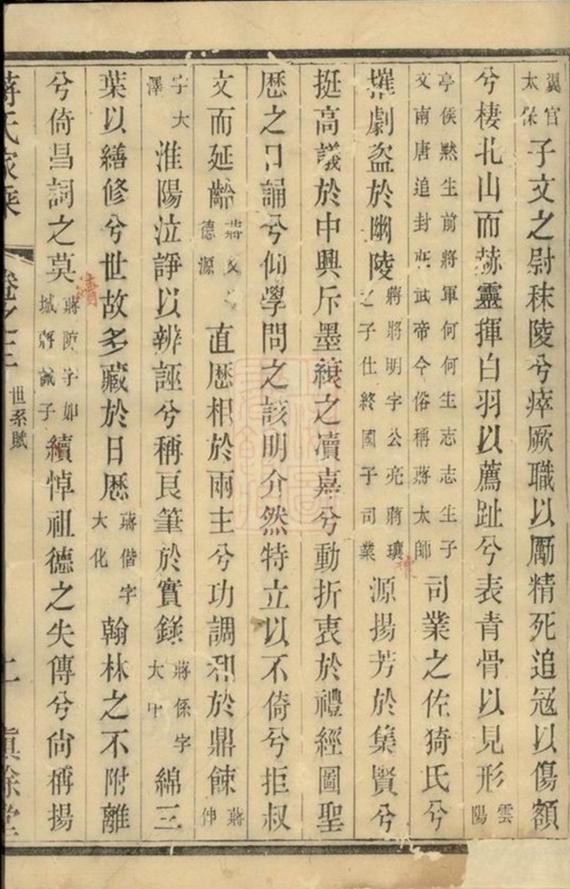 翼官太保子文之尉秣陵兮瘁厥職以勵精死追冦以傷額
兮棲北山而赫靈揮白羽以薦趾兮表青骨以見形雲陽
亭侯黙生前將軍何何生志志生子文南唐追封武帝今俗稱蔣太師司業之佐猗氏兮
摧劇盜於幽陵蔣將明字公亮蔣瓌之子仕終國子司業源揚芳於集賢兮
挺高議於中興斥墨縗之凟嘉兮動折衷於禮經圖聖
歴之口誦兮仰學問之該明介然特立以不倚兮拒叔
文而延齡蔣乂德源直歴相於兩主兮功調和於鼎餗蔣伸
字大澤淮陽泣諍以辨誣兮稱良筆於實錄蔣係字大綿三
葉以繕修兮世故多藏於日歴蔣偕字大化翰林之不附離
兮倚昌詞之莫蔣防字如城蔣諴子續悼祖德之失傳兮尙稱揚
蔣氏家乘 卷之三 世系賦 慎餘堂